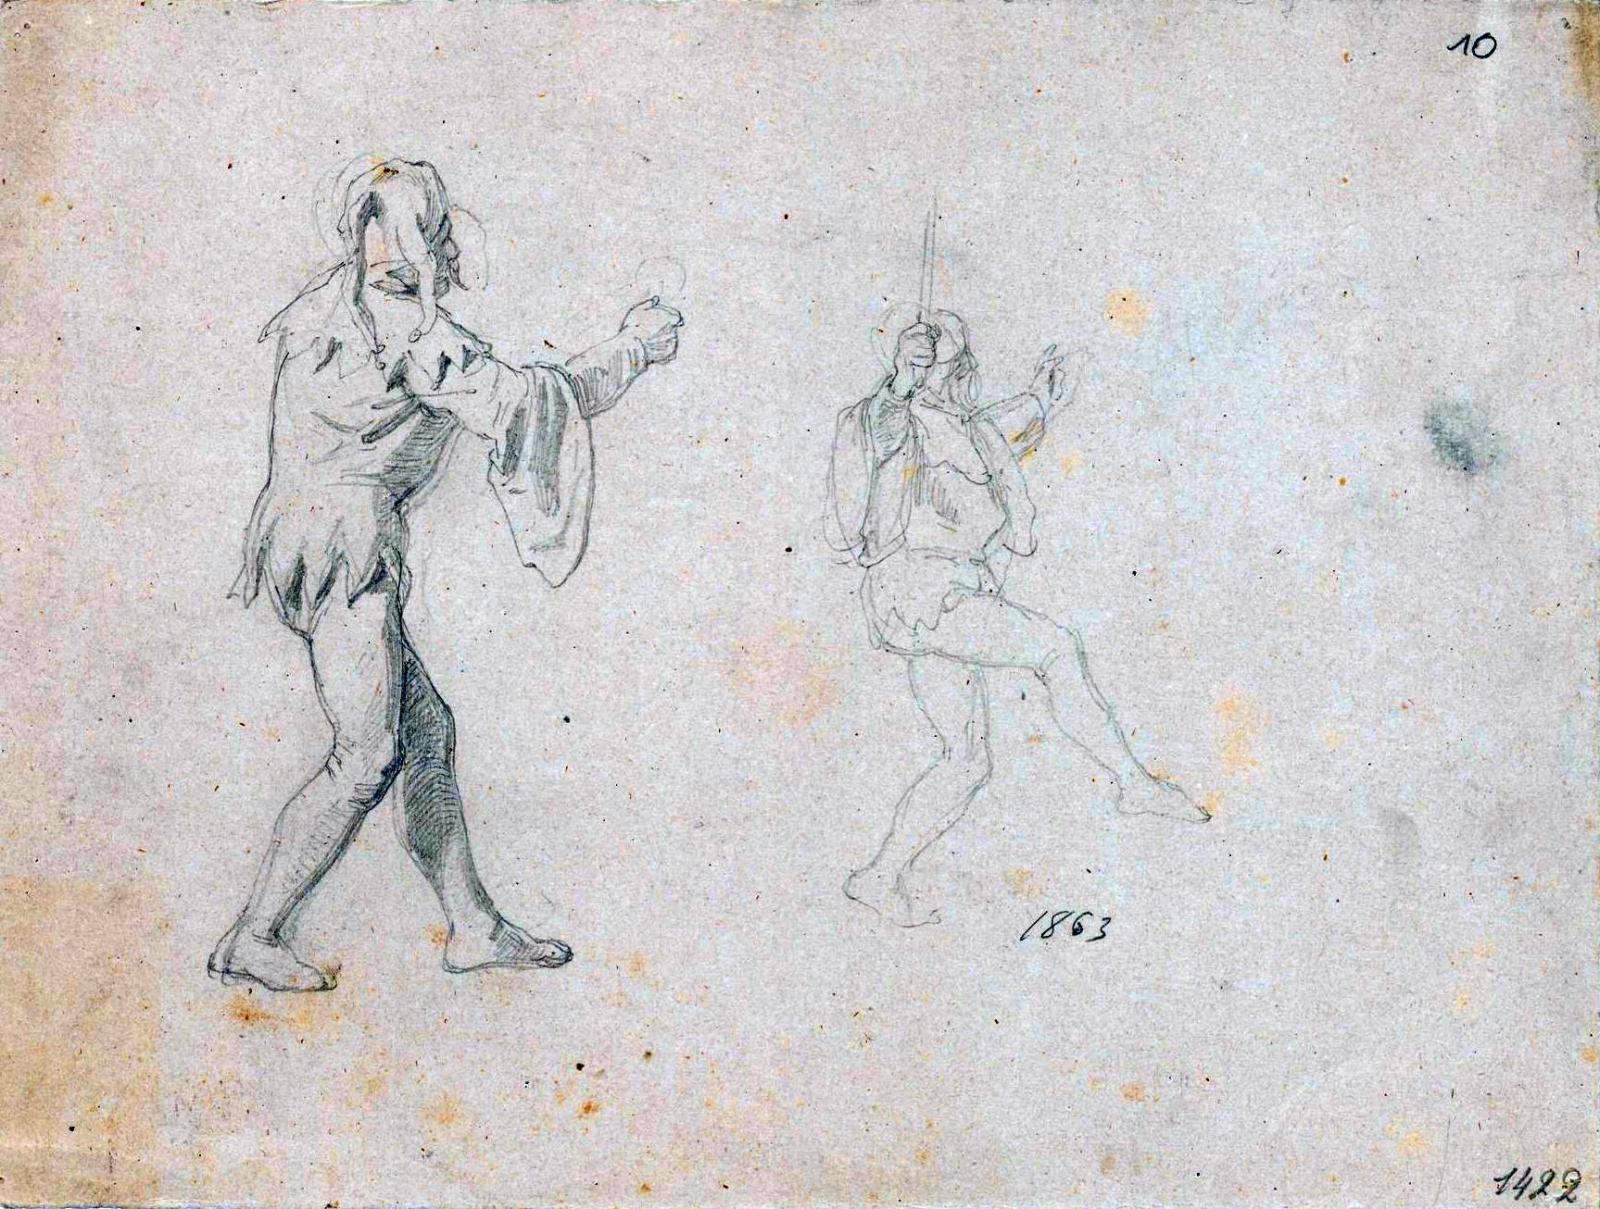 10
1863
1422